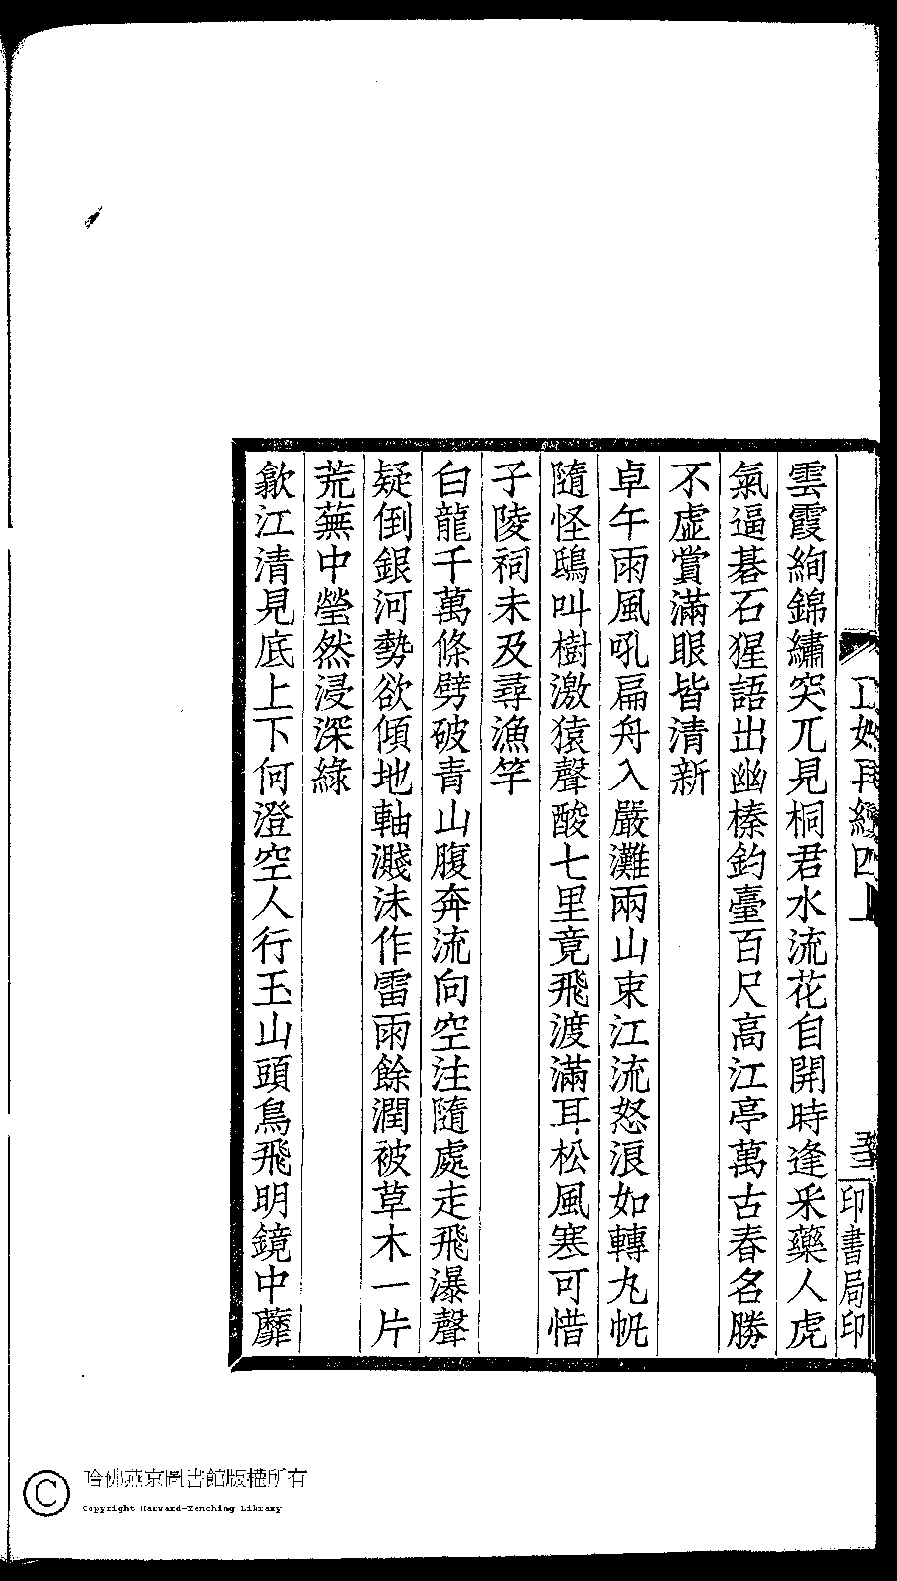 雲霞絢錦繡突兀見桐君水流花自開時逢釆藥人虎
氣逼碁石猩語出幽榛釣臺百尺高江亭萬古春名勝
不虛賞滿眼皆清新
卓午雨風吼扁舟入嚴灘兩山束江流怒浪如轉丸帆
隨怪鴟叫樹激猿聲酸七里竟飛渡滿耳松風寒可惜
子陵祠未及尋漁竿
白龍千萬條劈破青山腹奔流向空注隨處走飛瀑聲
疑倒銀河勢欲傾地軸濺沫作雷雨餘潤被草木一片
荒蕪中瑩然浸深綠
歙江清見底上下何澄空人行玉山頭鳥飛明鏡中蘼
四上
印書局印
哈佛燕京圖書館版權所有
Copyright Harvard-Yenching Library